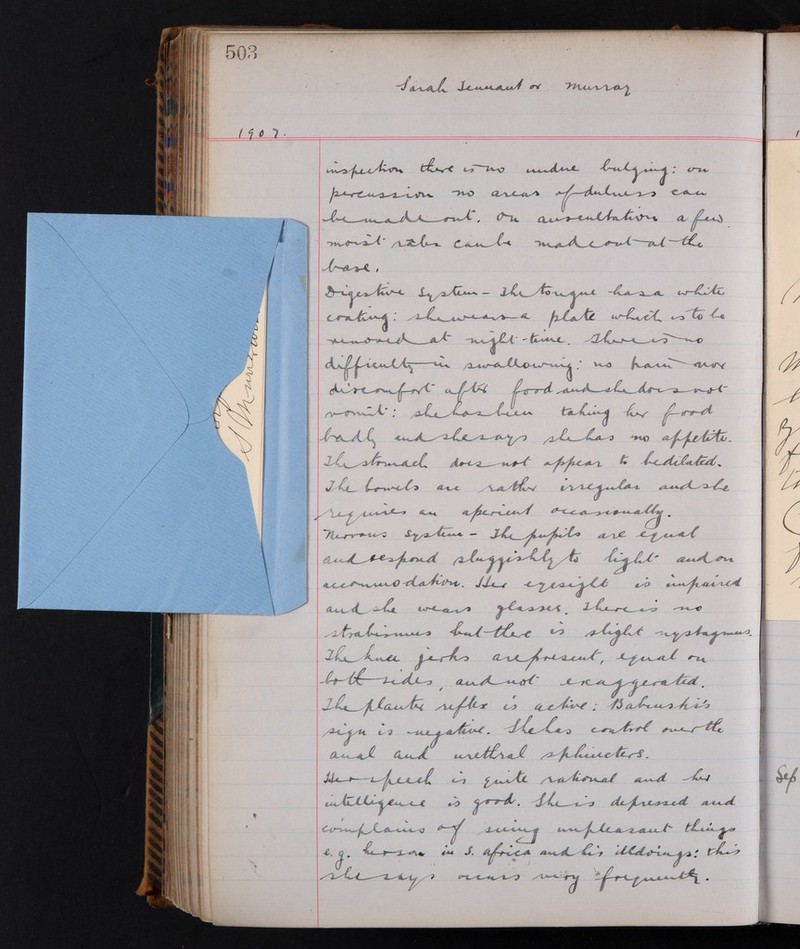 503
Sarah Tennant or Murray
1907.
inspection there is no undue bulging: on
percussion no areas of dulness can
be made out. On auscultation a few
moist râles can be made out at the
base.
Digestive System - The tongue has a white
coating: she wears a plate which is to be
removed at night-time. There is no
difficulty in swallowing: no pain nor
discomfort after food and she does not
vomit: she has been taking her food
badly and she says she has no appetite.
The stomach does not appear to be dilated.
The bowels are rather irregular and she
requires an aperient occasionally.
Nervous System - The pupils are equal
and respond sluggishly to light and on
accommodation. Her eyesight is impaired
and she wears glasses. There is no
strabismus but there is slight nystagmus.
The knee jerks are present, equal on
both sides, and not exaggerated.
The plantar reflex is active: Babinski's
sign is negative. She has control over the
anal and urethral sphincters.
Her speech is quite rational and her
intelligence is good. She is depressed and
complains of seeing unpleasant things
e.g. her son in S. Africa and his illdoings: this
she says occurs very frequently.
Sep